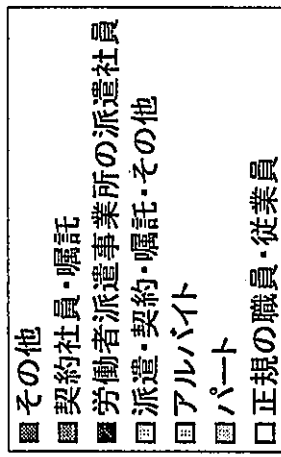 その他
契約社員・嘱託
労働者派遣事業所の派遣社員
派遣・契約・嘱託・その他
アルバイト
パート
正規の職員・従業員